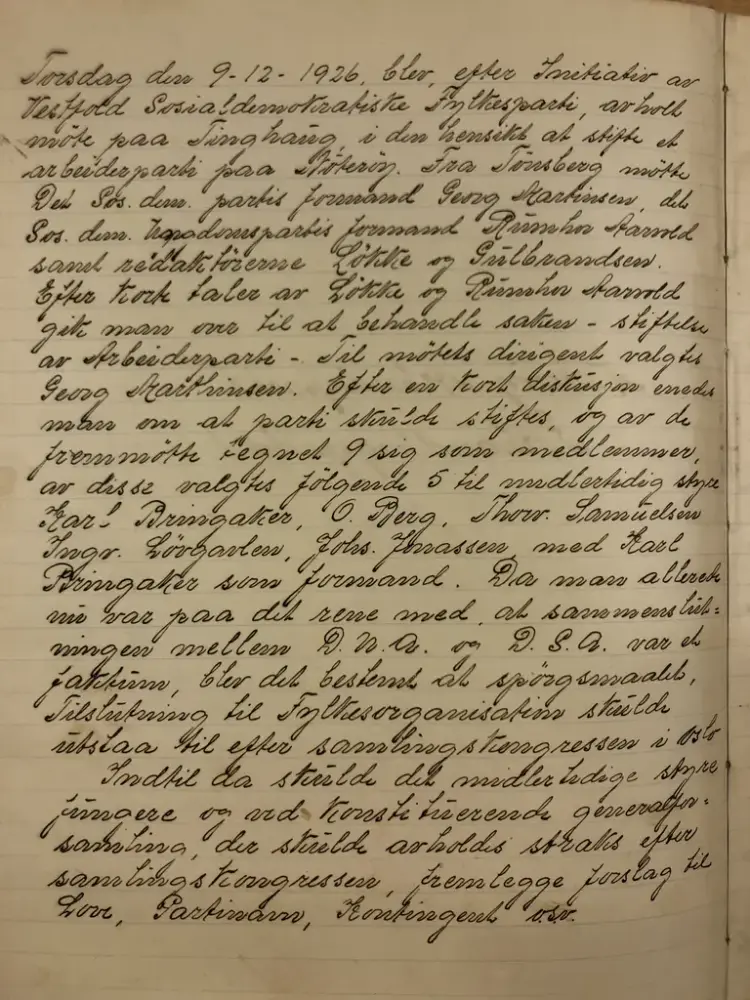 Torsdag den 9-12-1926, blev, efter Initiativ av
Vestfold Sosialdemokratiske Fylkesparti, avholt
möte paa Tinghaug, i den hensikt at stifte et
arbeiderparti paa Nöteröy. Fra Tönsberg mötte
Det Sos. dem. partis formand Georg Martinsen, det
Sos. dem. Ungdomspartis formand Rumhor Aarvold
samt redaktörerne Lökke og Gulbrandsen.
Efter kort taler av Lökke og Rumhor Aarvold
gik man over til at behandle saken - stiftelse
av Arbeiderparti - Til mötets dirigent valgtes
Georg Marthinsen. Efter en kort diskusjon enedes
man om at parti skulde stiftes, og av de
fremmötte tegnet 9 sig som medlemmer,
av disse valgtes fölgende 5 til midlertidig styre
Karl Bringaker, O. Berg, Thorv. Samuelsen
Ingv. Lövgavlen, Johs. Jonassen, med Karl
Bringaker som formand. Da man allerede
nu var paa det rene med, at sammenslut=
ningen mellem D.N.A. og D.S.A. var et
faktum, blev det bestemt at spörgsmaalet,
Tilslutning til Fylkesorganisation skulde
utstaa til efter samlingskongressen i Oslo
Indtil da skulde det midlertidige styre
fungere og ved konstituerende generalfor=
samling, der skulde avholdes straks efter
samlingskongressen, fremlegge forslag til
Love, Partinavn, Kontingent osv.